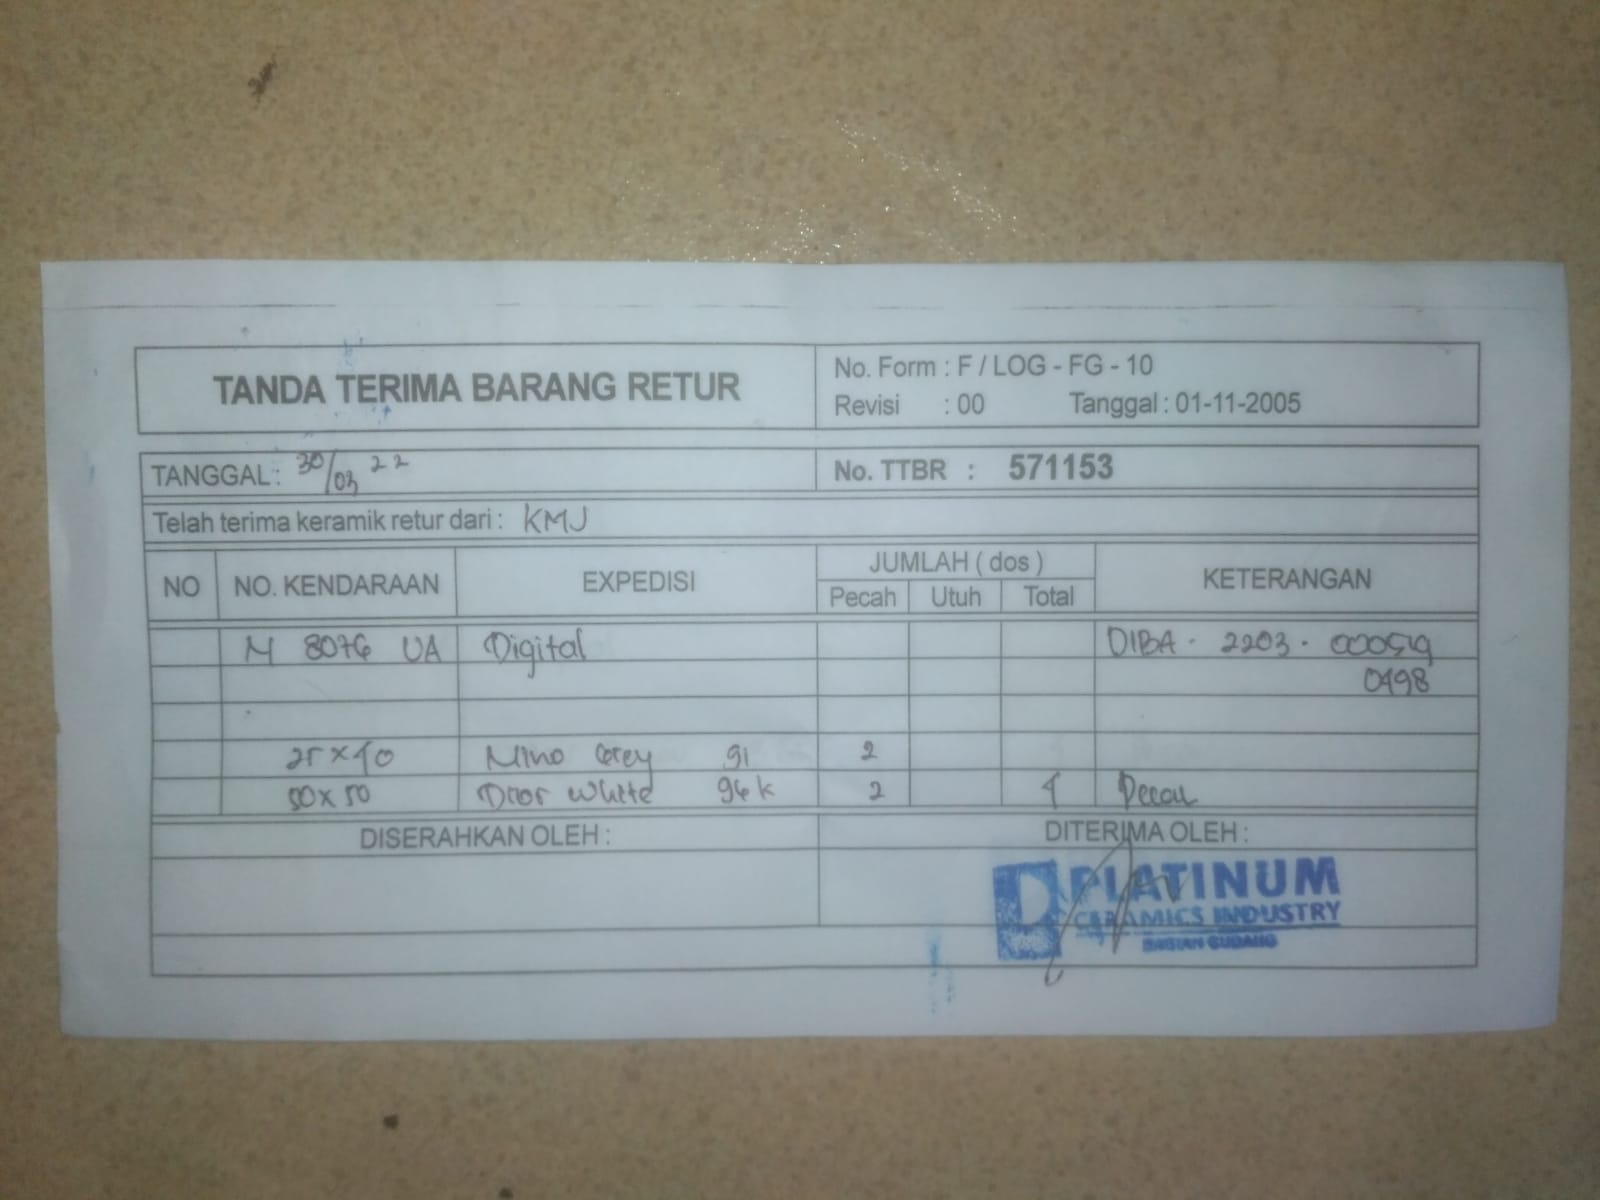 TANDA TERIMA BARANG RETUR
No. Form : F / LOG - FG - 10
Revisi : 00 Tanggal : 01-11-2005
TANGGAL : 30/03 22
No. TTBR : 571153
Telah terima keramik retur dari : KMJ
NO NO. KENDARAAN EXPEDISI JUMLAH ( dos ) KETERANGAN
Pecah Utuh Total
M 8076 UA Digital DIBA - 2203 -
0498
25 x 40 Mino Grey 91 2
50 x 50 White 2 4
DISERAHKAN OLEH : DITERIMA OLEH :
PLATINUM
CERAMICS INDUSTRY
BAGIAN GUDANG